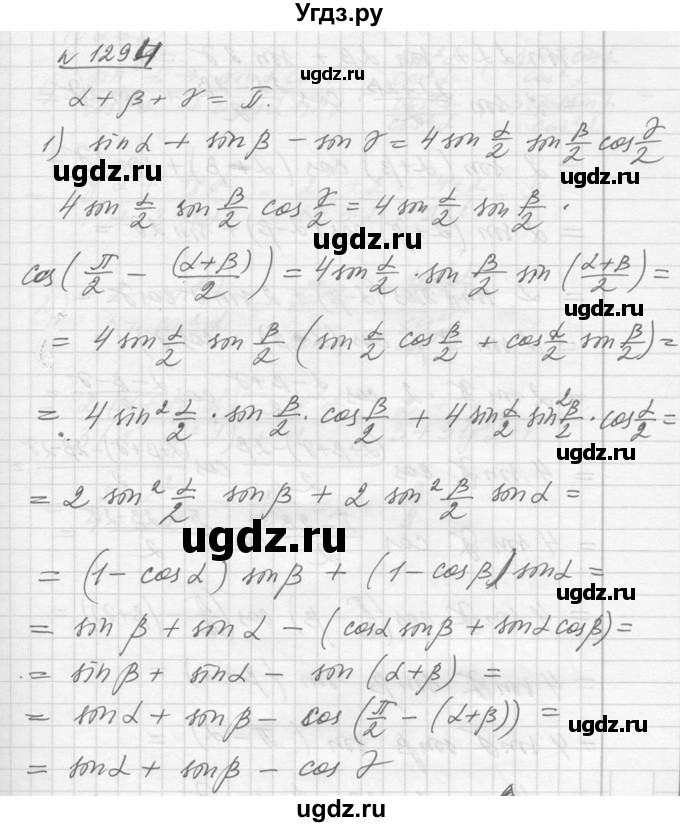 Угдз.ру
№ 1294
ugdz.ru
α + β + γ = π.
ugdz.ru
1) sinα + sinβ − sin γ = 4 sin α/2 sin β/2 cos γ/2
ugdz.ru ugdz.ru
4 sin α/2 sin β/2 cos γ/2 = 4 sin α/2 sin β/2 ·
ugdz.ru
cos(π/2 − (α+β)/2) = 4 sin α/2 · sin β/2 sin (α+β/2) =
ugdz.ru
= 4 sin α/2 sin β/2 (sin α/2 cos β/2 + cos α/2 sin β/2) =
= 4 sin² α/2 · sin β/2 · cos β/2 + 4 sin α/2 sin² β/2 · cos α/2 =
ugdz.ru
= 2 sin² α/2 sin β + 2 sin² β/2 sin α =
ugdz.ru
= (1 − cos α) sin β + (1 − cos β) sin α =
ugdz.ru
= sin β + sin α − (cosα sinβ + sinα cosβ) =
= sinβ + sinα − sin (α+β) =
= sinα + sinβ − cos (π/2 − (α+β)) =
ugdz.ru
= sinα + sinβ − cos γ
ugdz.ru
ugdz.ru